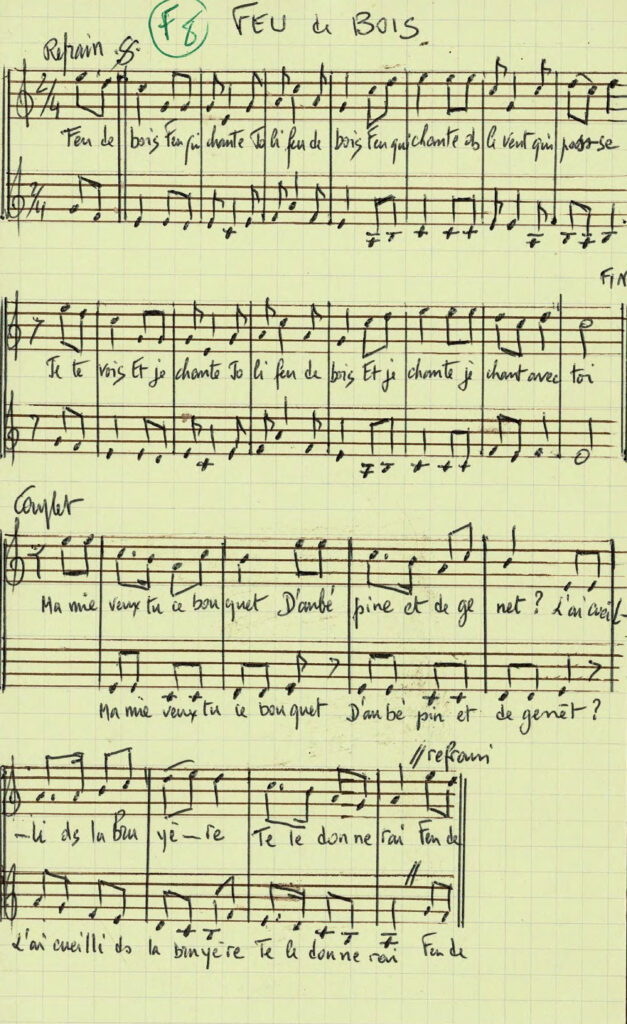 F8 FEU de BOIS
Refrain
2/4
Feu de bois Feu qui chante Jo li feu de bois Feu qui chante ds le vent qui pas-se
2/4
FIN
Je te vois Et je chante Jo li feu de bois Et je chante je chant avec toi
Couplet
Ma mie veux tu ce bou quet D'aubé pine et de ge net? L'ai cueil-
Ma mie veux tu ce bou quet D'aubé pin et de genêt?
// refrain
-li ds la Bru yè-re Te le donne rai Feu de
//
L'ai cueilli ds la bruyère Te le donne rai Feu de